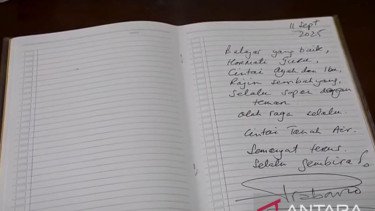 11 Sept
2025
Belajar yang baik,
Hormati Guru,
Cintai Ayah dan Ibu,
Rajin sembahyang,
Selalu sopan dengan
teman
Olah raga selalu
Cintai Tanah Air.
Semangat terus.
Selalu gembira!
Prabowo
ANTARA